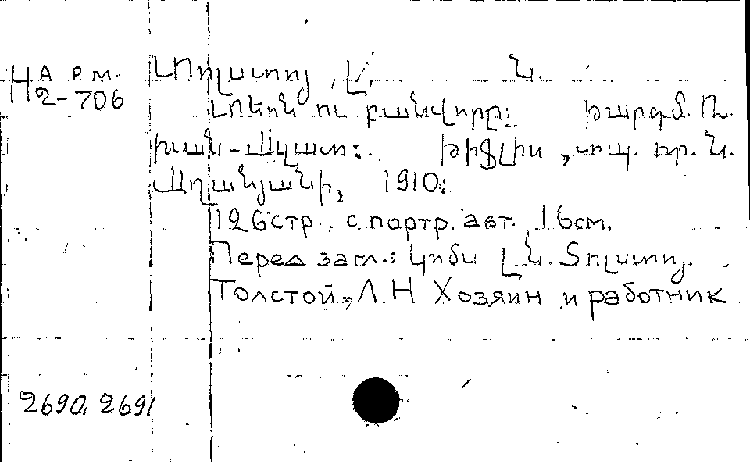 На рм. Տոլստոյ, Լ. Ն.
2-706
Տէրն ու բանվորը: Թարգմ. Ռ.
Խան-Ազատ: Թիֆլիս, տպ. օր. Ն.
Աղանյանի, 1910:
126стр. с портр. авт. 16см.
Перед загл.: կոմս Լ. Ն. Տոլստոյ.
Толстой, Л. Н Хозяин и работник
2690, 2691